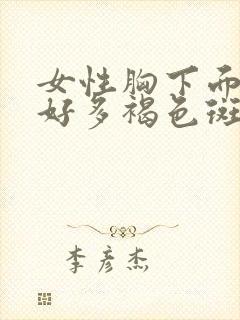 女性胸下而
好多褐色斑
李彦杰